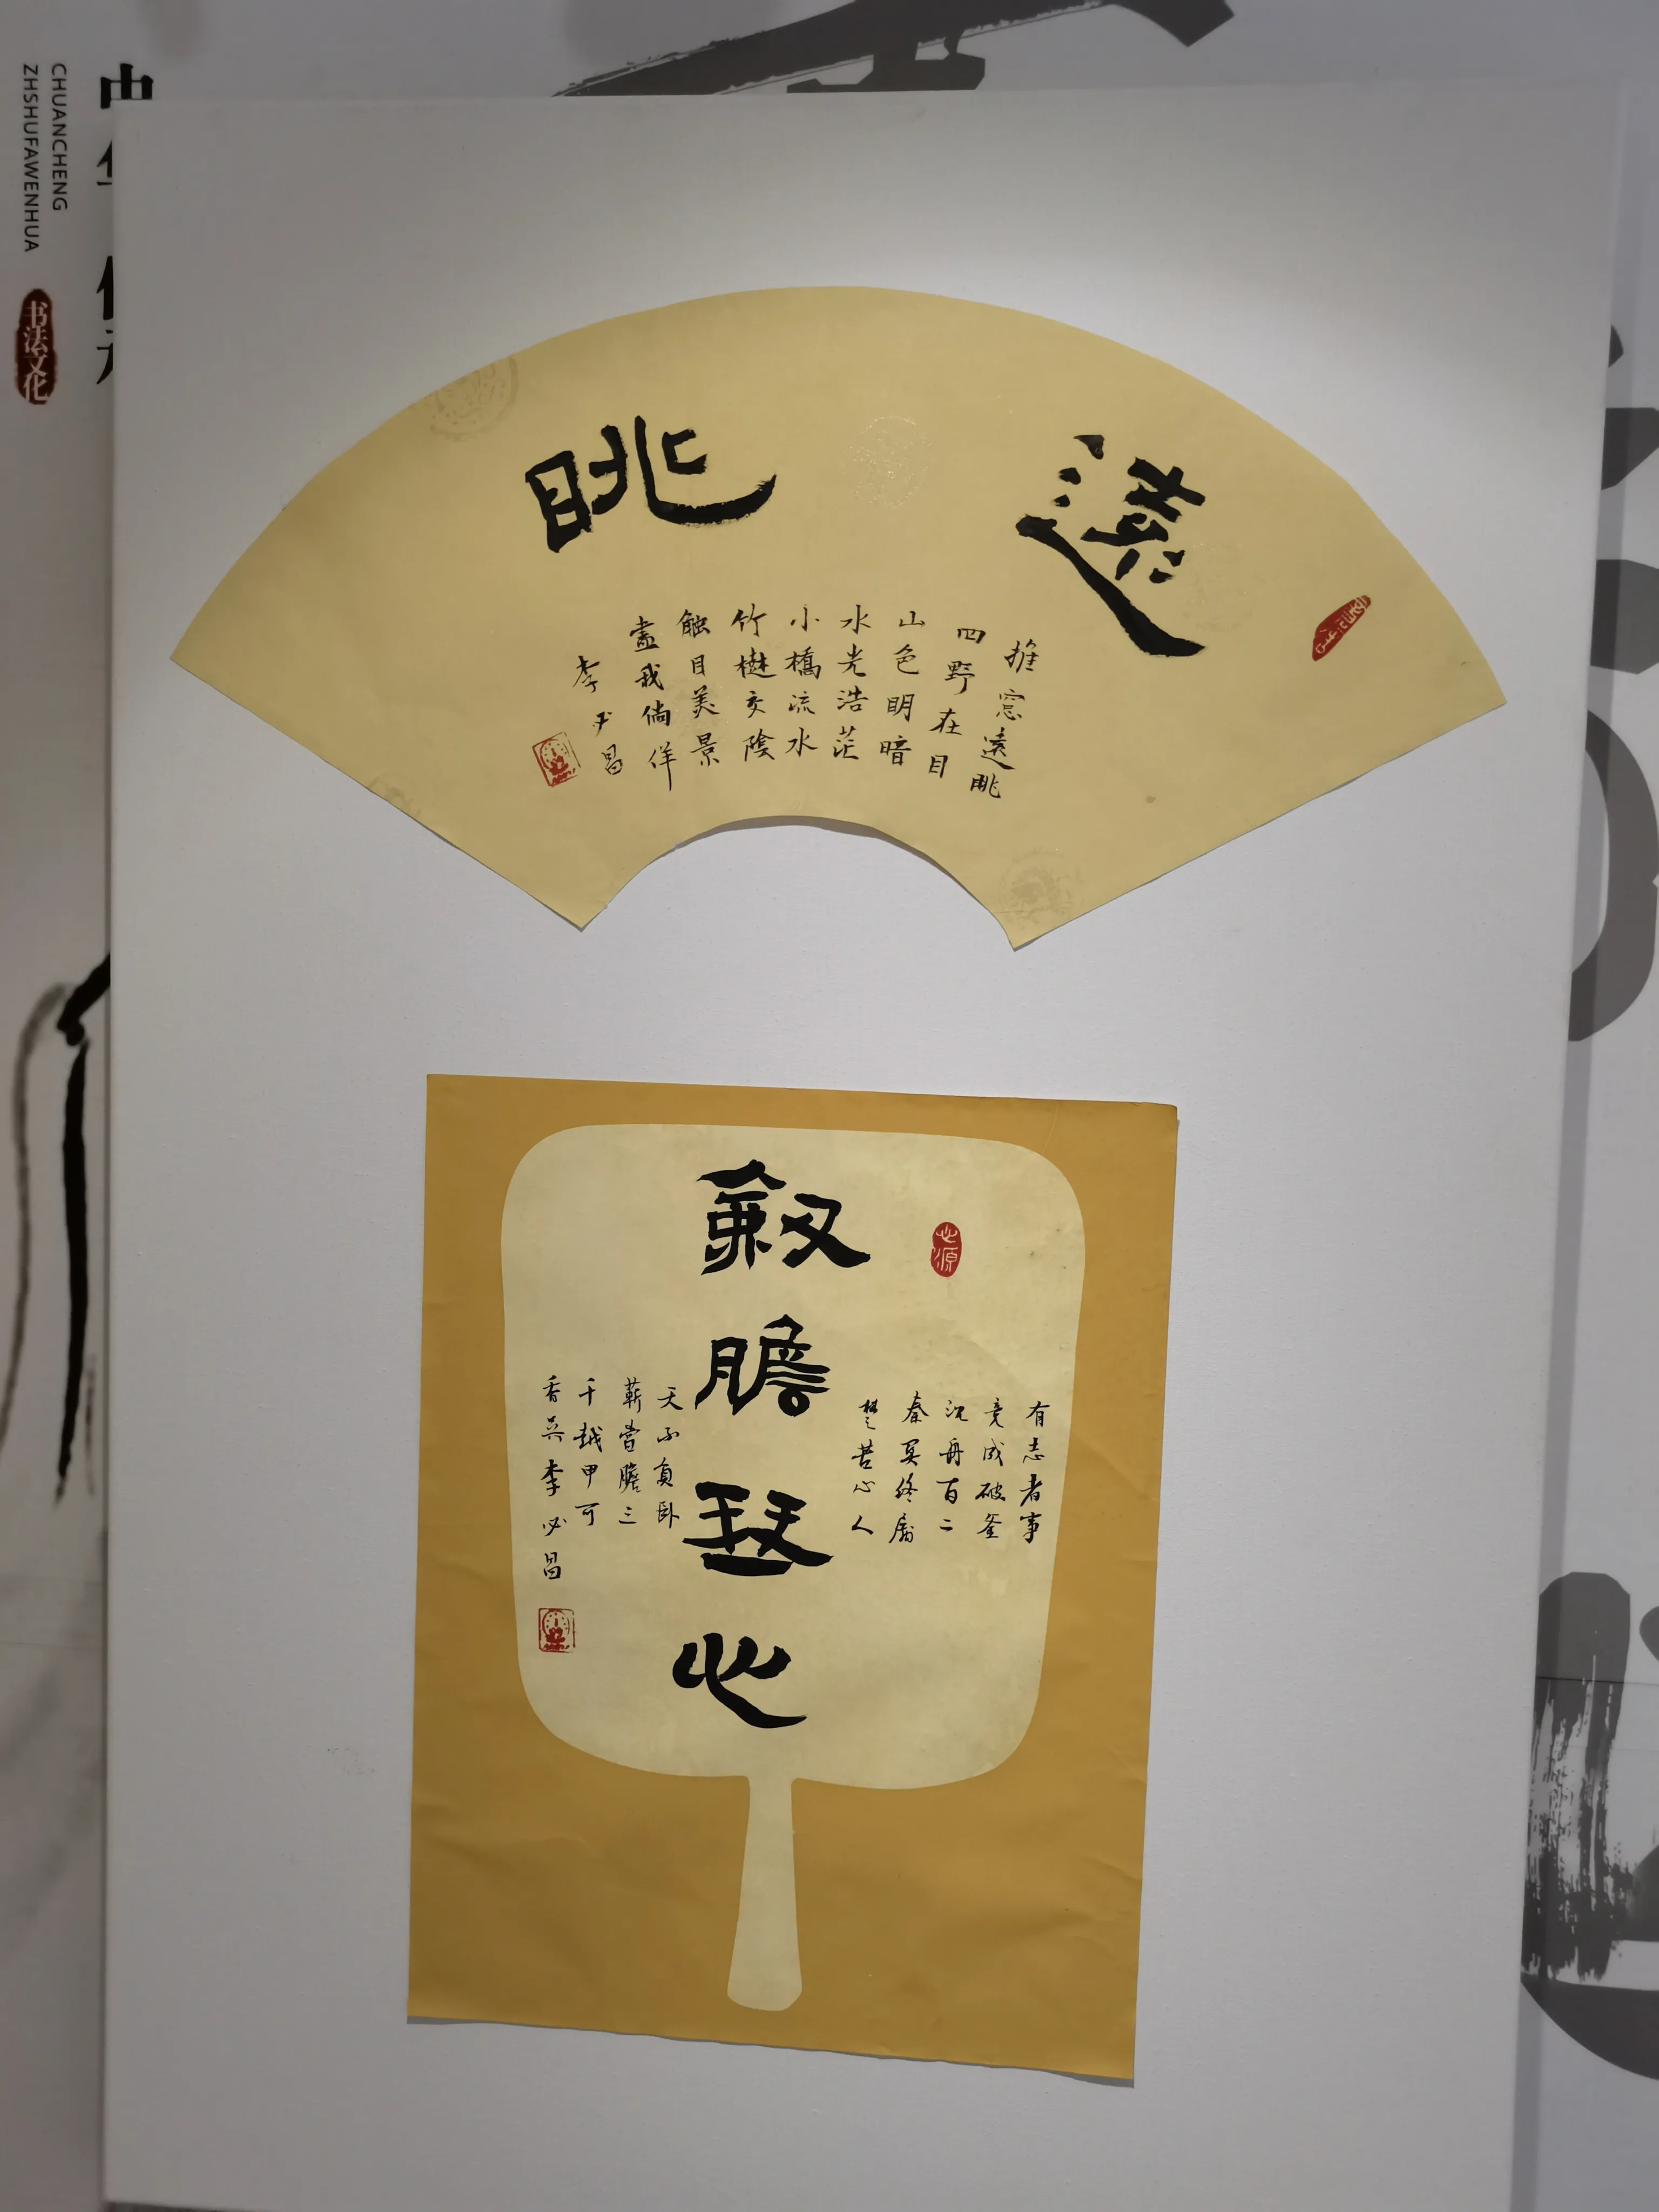 CHUANCHENG
ZHSHUFAWENHUA
书法文化
遠眺
推窓遠眺
四野在目
山色明暗
水光浩茫
小橋流水
竹樾交陰
触目美景
盡我倘佯
李必昌
心源
劔膽琴心
有志者事
竟成破釜
沈舟百二
秦関終屬
楚苦心人
天不負卧
薪嘗膽三
千越甲可
吞吳李必昌